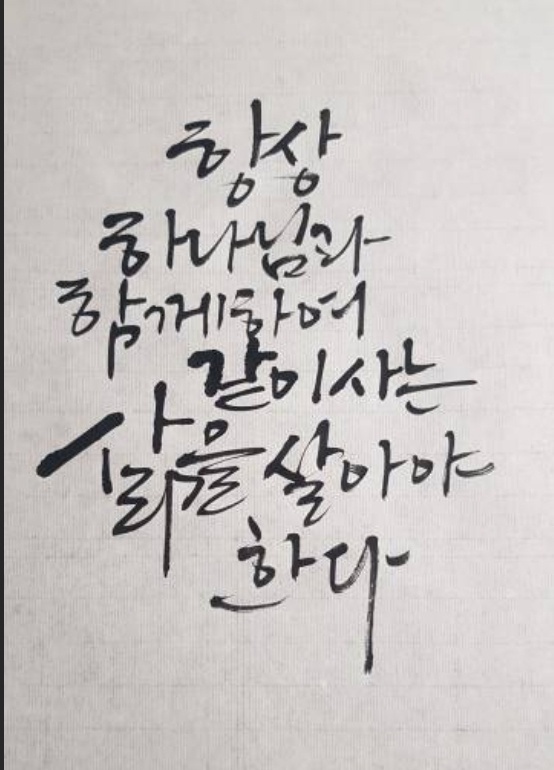 항상
하나님과
함께하여
같이 사는
삶을 살아야
한다